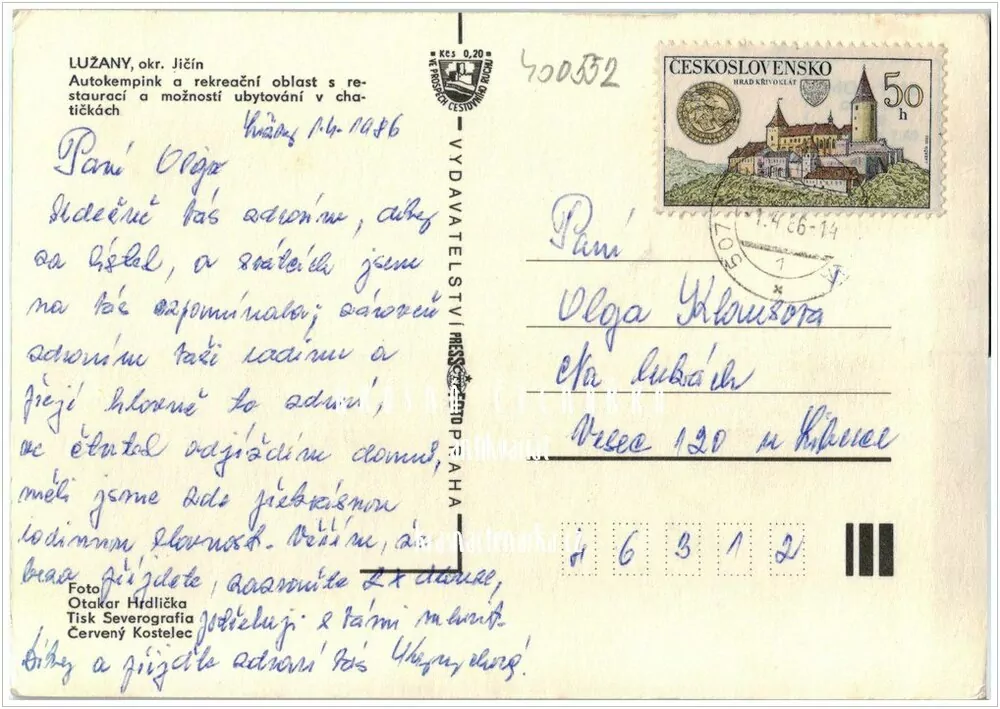 LUŽANY, okr. Jičín
Autokempink a rekreační oblast s re-
staurací a možností ubytování v cha-
tičkách
1.4. 1986
Paní Olgo
Srdečně Vás zdravím, díky
za lístek, o svátcích jsem
na Vás vzpomínala, zároveň
zdravím Vaši rodinu a
přeji hlavně to zdraví,
ve čtvrtek odjíždím domů,
měli jsme zde překrásnou
rodinnou slavnost. Věřím, že
brzo přijedete, zazvoňte 2x dlouze,
potřebuji s Vámi mluvit.
Díky a přijeďte zdraví Vás
Foto
Otakar Hrdlička
Tisk Severografia
Červený Kostelec
Kčs 0,20
VE PROSPĚCH CESTOVNÍHO RUCHU
VYDAVATELSTVÍ PRESSFOTO PRAHA
400552
ČESKOSLOVENSKO
HRAD KŘIVOKLÁT
50 h
-1.4.86-14
1
507 05
Paní
Olga Kloušova
Na
Vesec 120 u Liberce
46312